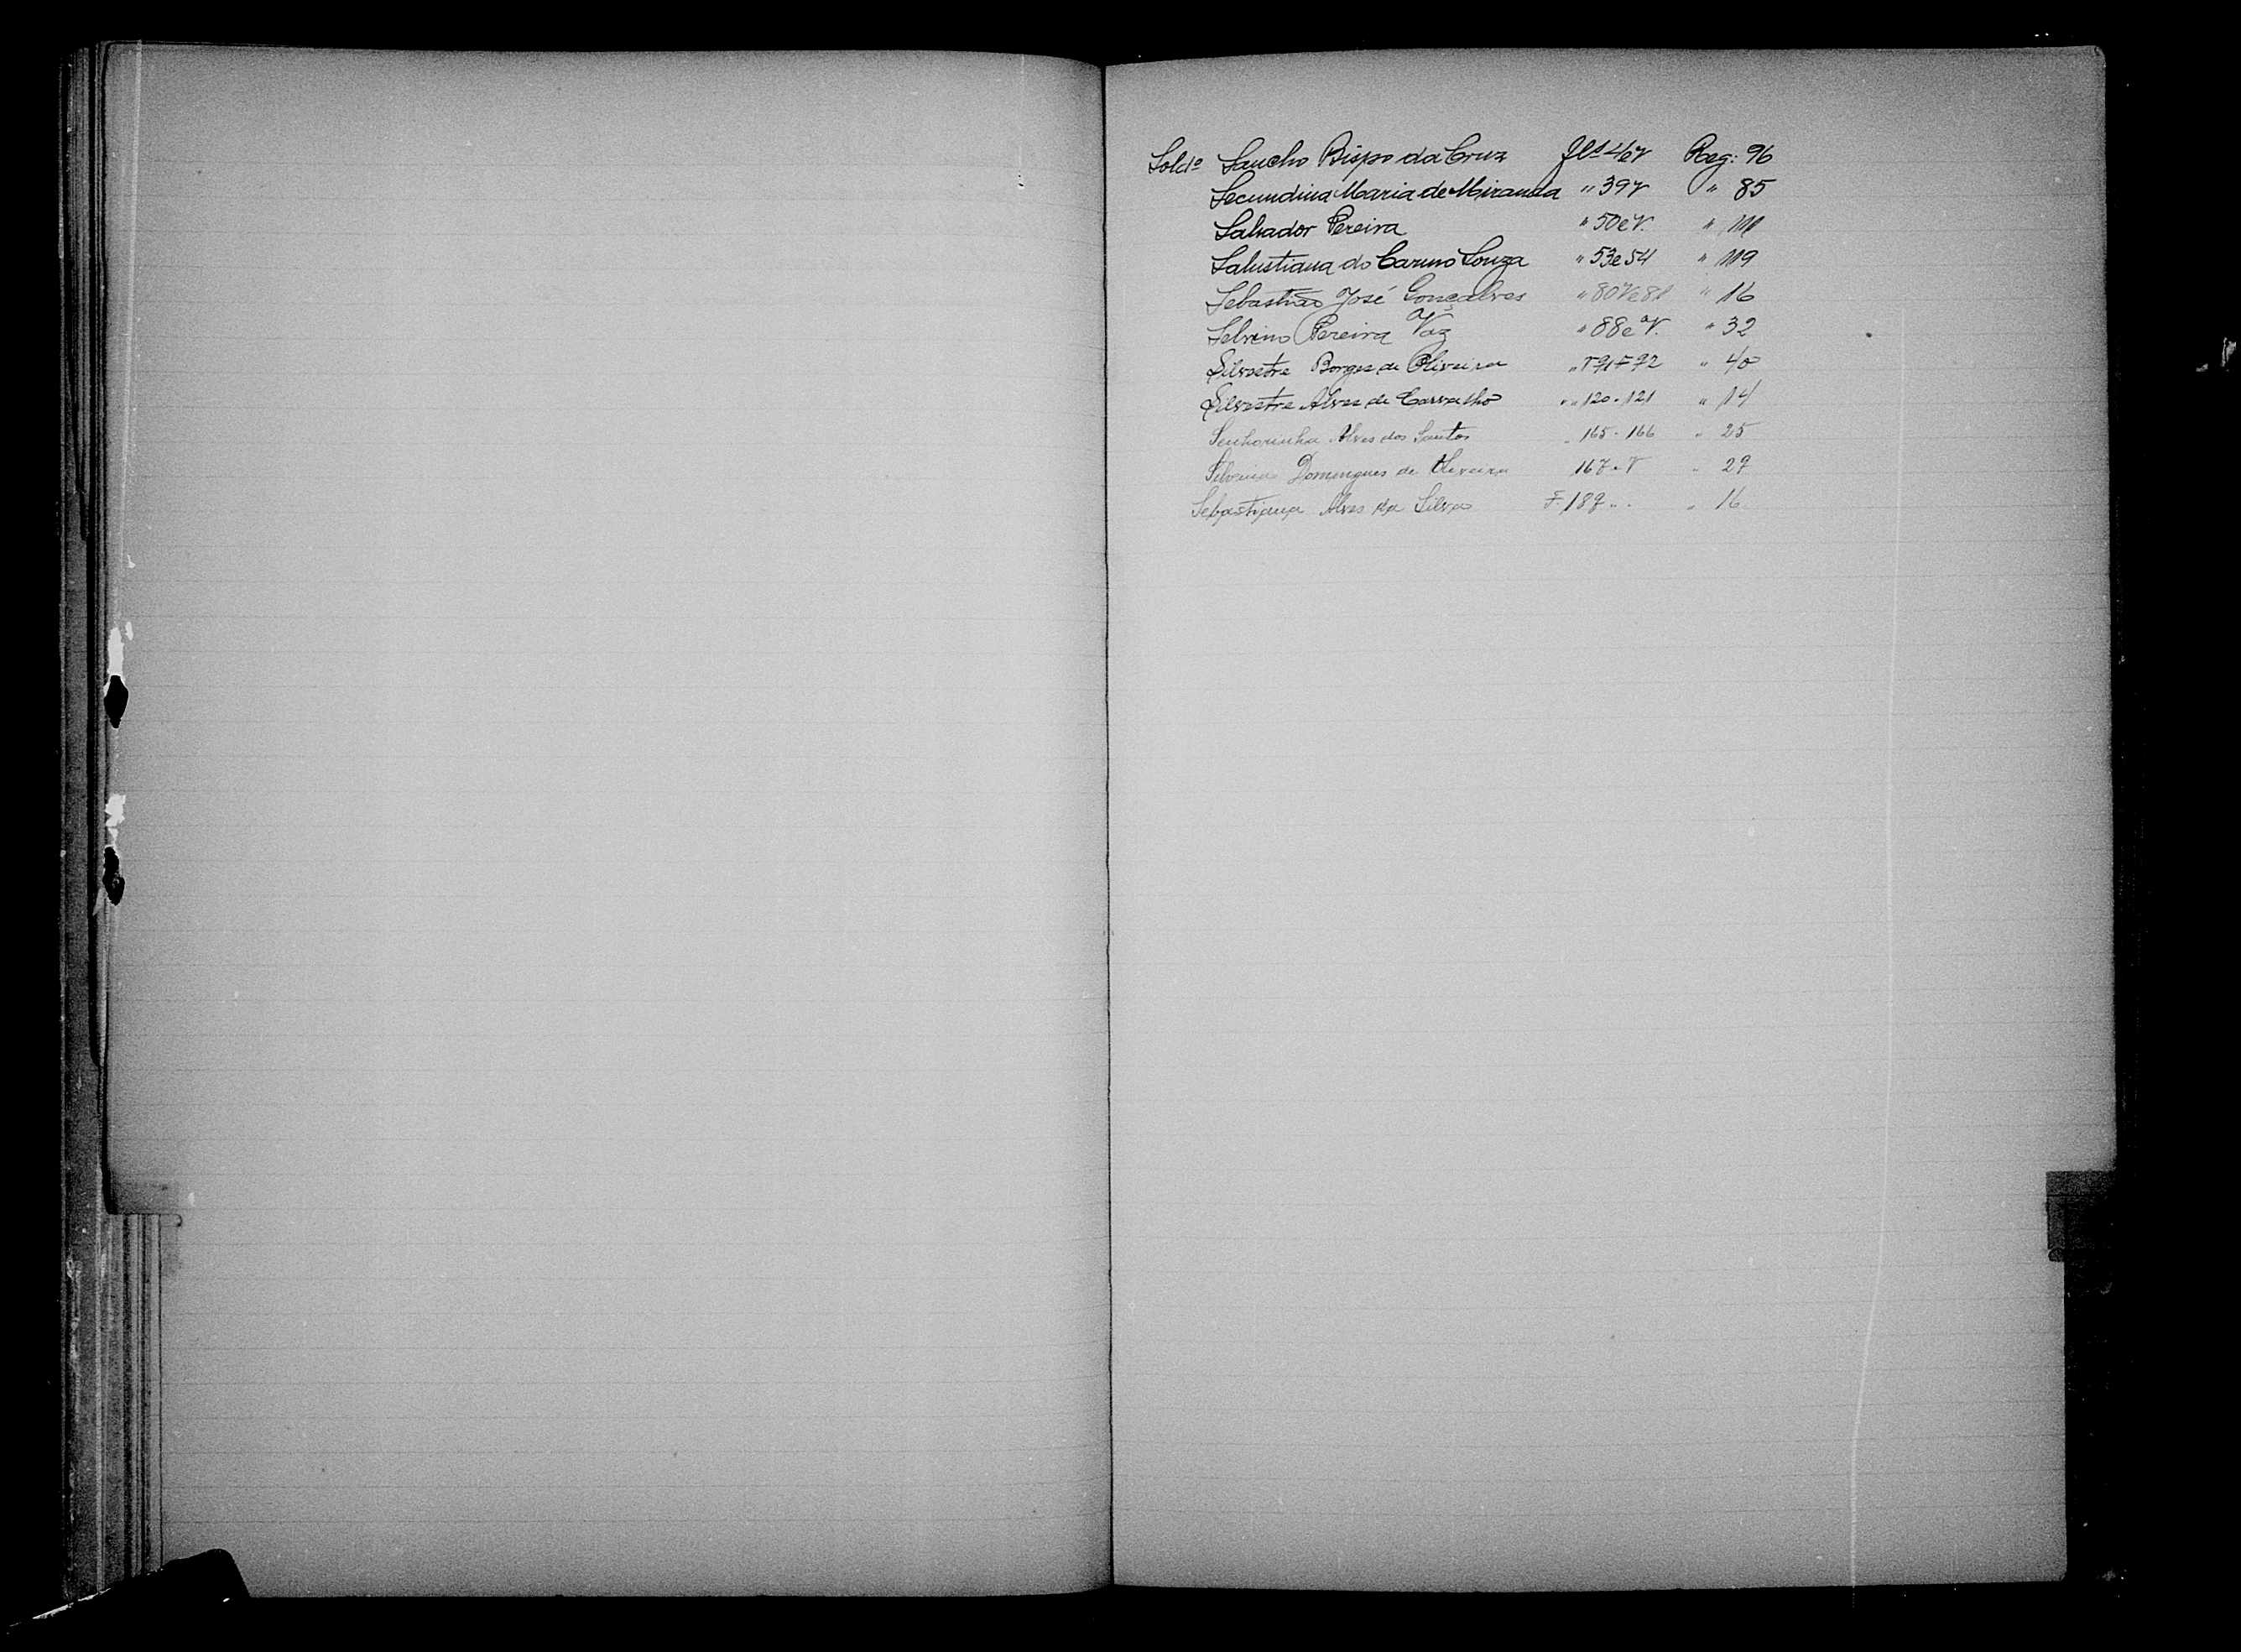 Sold.º Sancho Bispo da Cruz Fls 4 e v Reg: 96
Secundina Maria de Miranda " 39 v " 85
Salvador Pereira " 50 e V. " 111
Salustiana do Carmo Souza " 53 e 54 " 119
Sebastião José Gonçalves " 80 V e 81 " 16
Selvino Pereira Vaz " 88 e V. " 32
Silvestre Borges de Oliveira " 92 " 40
Silvestre Alves de Carvalho " " 120 - 121 " 14
Senhorinha Alves dos Santos " 165 - 166 " 25
Domingues de Oliveira 167 - V "
Sebastiana Alves da Silva F. " 16